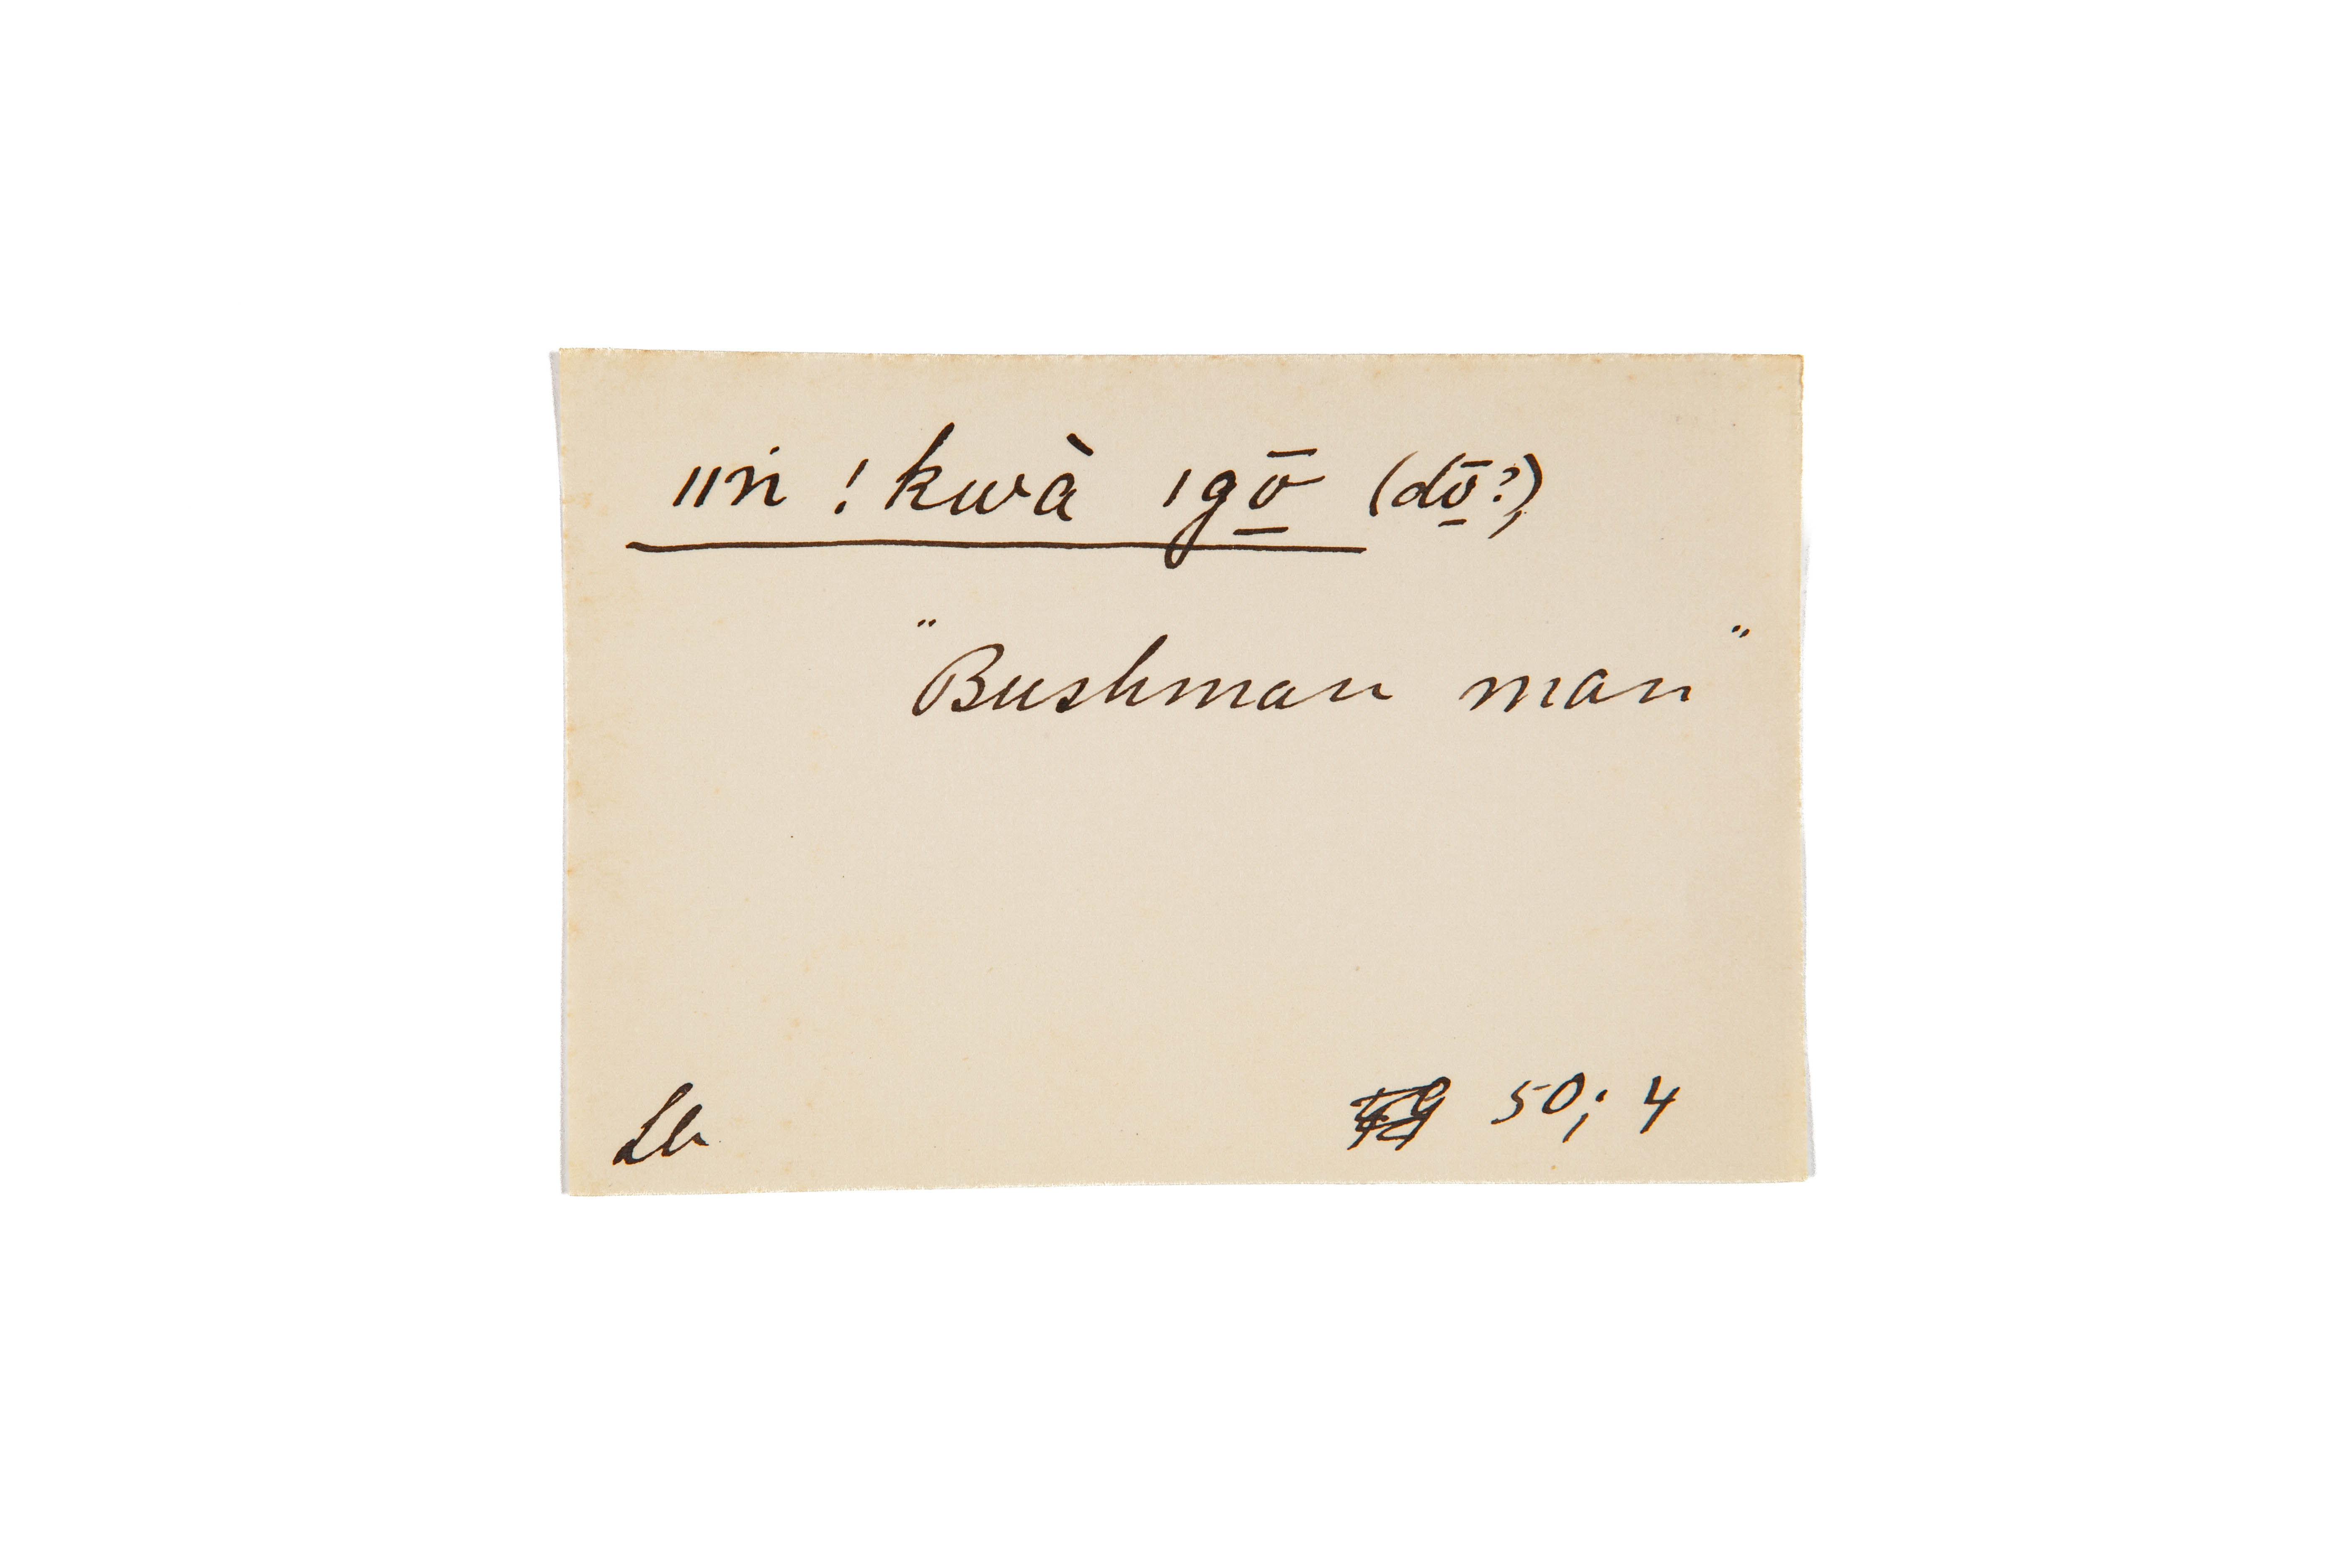 ǁṅ !kwà ǀgō̱ (dō̱?)
"Bushman man"
Lb 50; 4